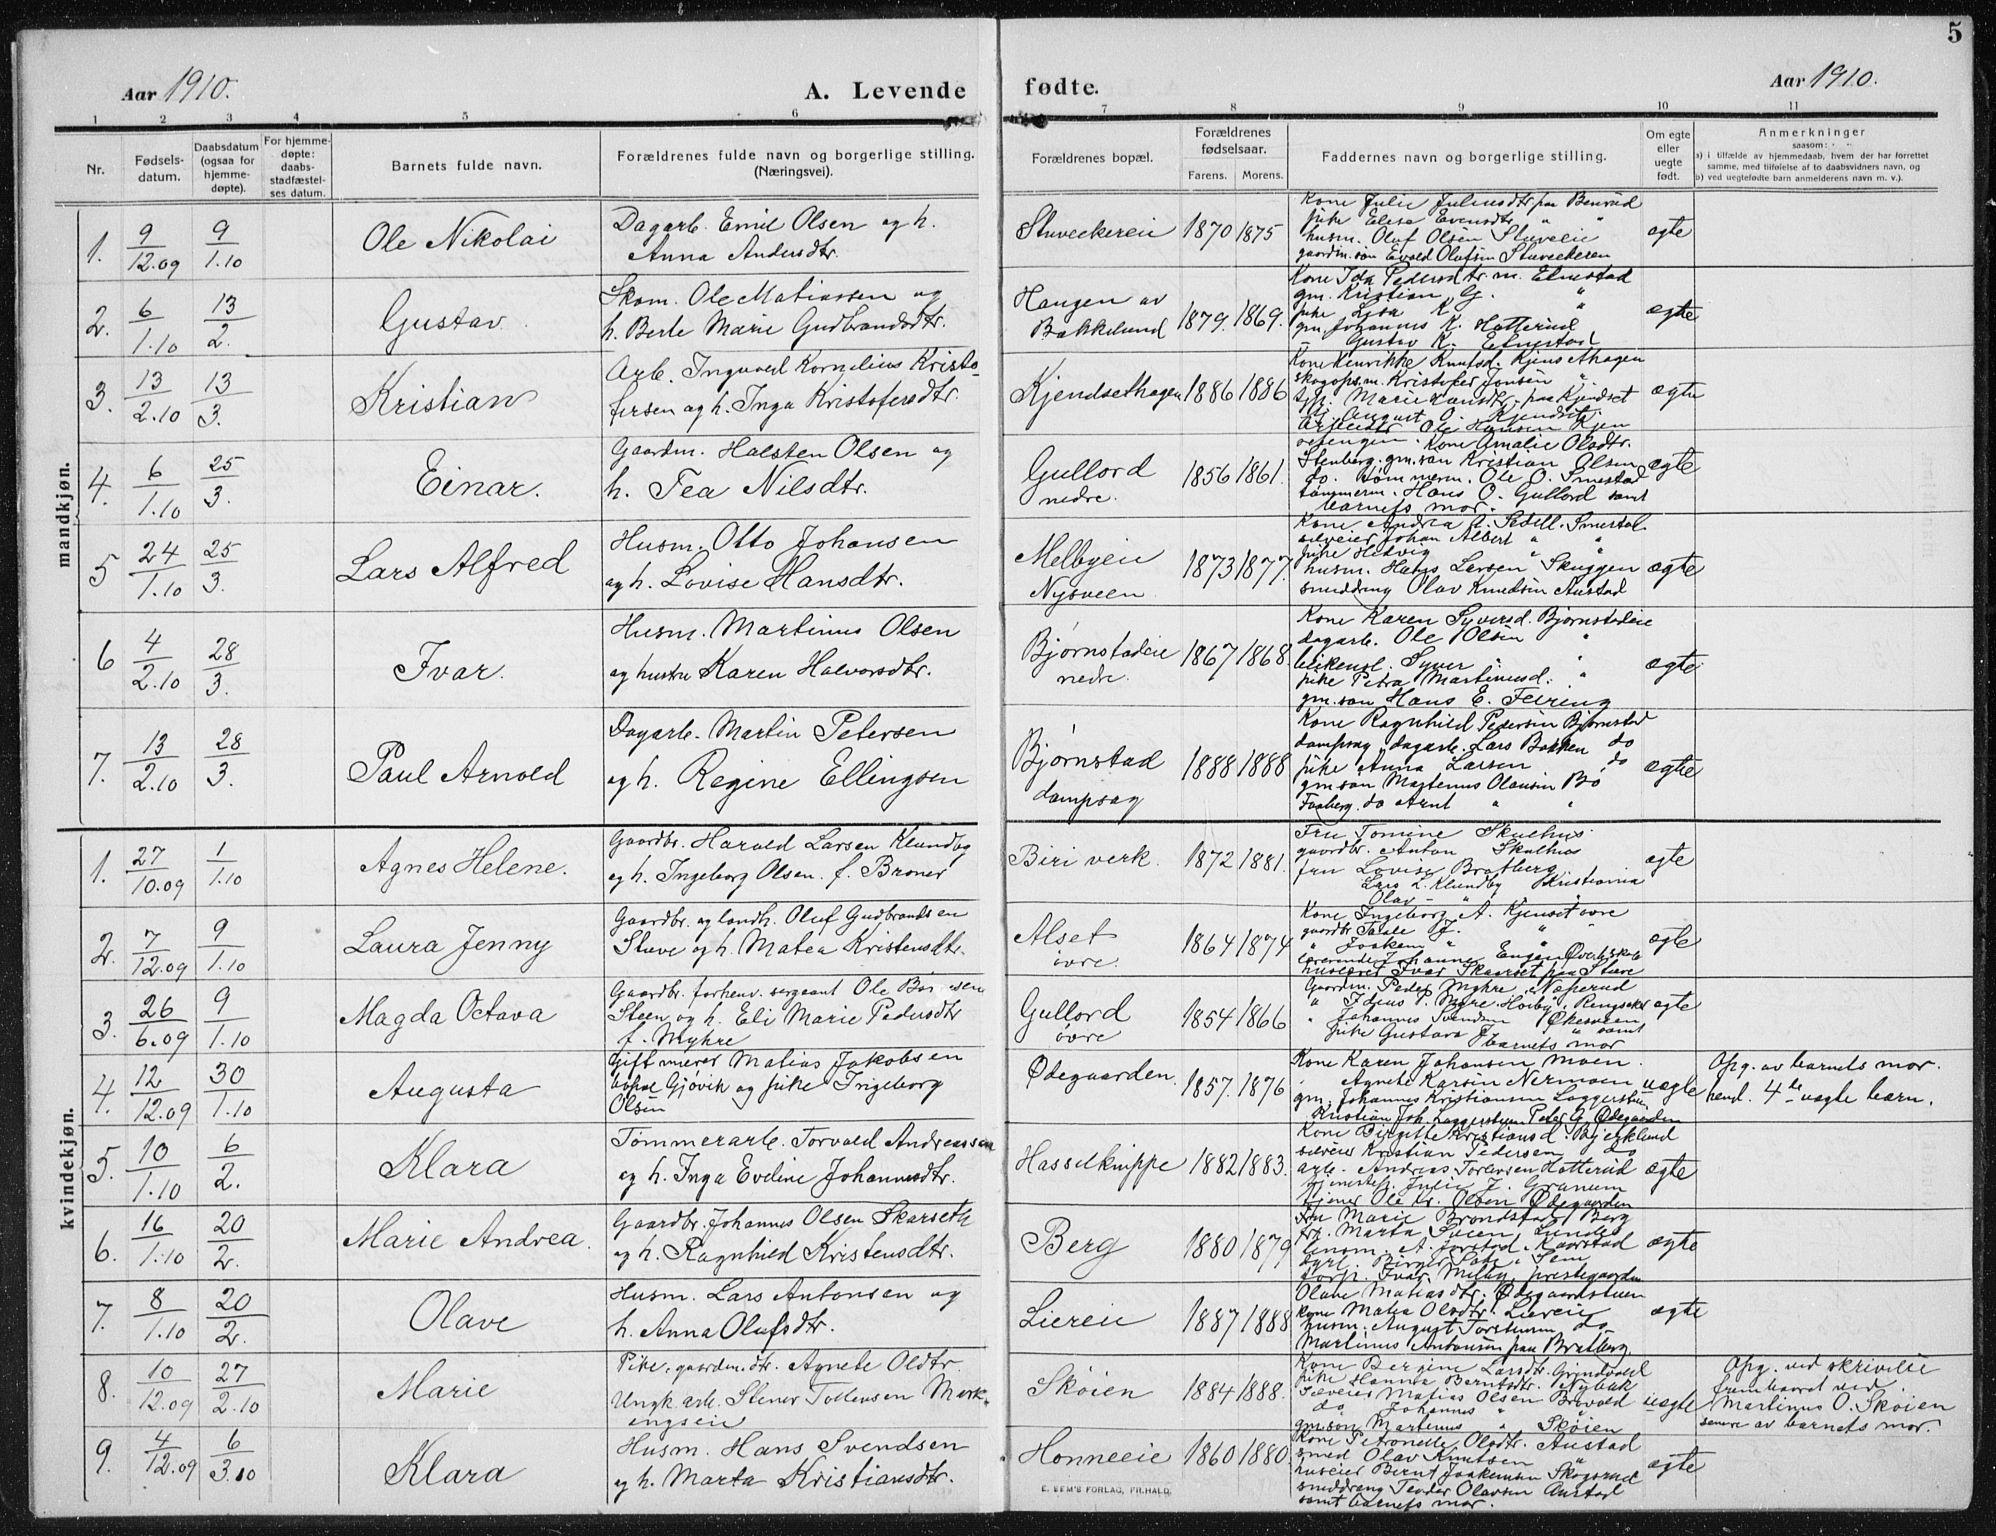 5
Aar 1910.
A. Levende fødte.
Aar 1910.
1 2 3 4 5 6 7 8 9 10 11
Nr.
Fødsels-
datum.
Daabsdatum
(ogsaa for
hjemme-
døpte).
For hjemme-
døpte:
daabs-
stadfæstel-
ses datum.
Barnets fulde navn.
Forældrenes fulde navn og borgerlige stilling.
(Næringsvei).
Forældrenes bopæl.
Forældrenes
fødselsaar.
Farens. Morens.
Faddernes navn og borgerlige stilling.
Om egte
eller
uegte
født.
Anmerkninger
saasom:
a) i tilfælde av hjemmedaab, hvem der har forrettet
samme, med tilføielse af to daabsvidners navn, og
b) ved uegtefødte barn anmelderens navn m. v.).
mandkjøn.
1. 9/12.09 9/1.10 Ole Nikolai
Dagarb. Emil Olsen og h.
Anna Andersdtr.
Stuveekereie 1870 1875
Kone Julie Juliusdtr paa Benrud
pike Elise Evensdtr. " "
husm. Oluf Olsen Stuveeie
gaardm.søn Evald Olufsen Stuveekeren
egte
2. 6/1.10 13/2. Gustav.
Skom. Ole Matiassen og
h. Berte Marie Gudbrandsdtr.
Haugen av
Bakkelund 1879. 1869.
Kone Ida Pedersdtr. m. Elnestad
gm. Kristian G. "
gm. Johannes K. Hatterud
Gustav K. Elnestad
egte
3. 13/2.10 13/3. Kristian
Arb. Ingvald Kornelius Kristo-
fersen og h. Inga Kristofersdtr.
Kjendsethagen 1886 1886
Kone Henrikke Knutsd. Kjensethagen
skogops.m. Kristofer Jonsen "
Marie Hansdtr. paa Kjendset
August O. Kjendset.
egte
4. 6/1.10 25/3. Einar.
Gaardm. Halsten Olsen og
h. Tea Nilsdtr.
Gullord
nedre. 1856 1861.
Arbeider Ole Hansen Kjen
setengen. Kone Amalie Olsdtr.
Stenberg. gm.søn Kristian Olsen
do. tømmerm. Ole O. Smestad
tømmerm. Hans O. Gullord samt
barnets mor.
egte
5 24/1.10 25/3. Lars Alfred
Husm. Otto Johansen
og h. Lovise Hansdtr.
Melbyeie
Nysveen 1873 1877.
Kone Andrea A. Sedell. Smestad.
selveier Johan Albert " "
pike Hedvig " "
husm. Hans Larsen Skuggen
smeddreng Olav Knudsen Austad
egte
6 4/2.10 28/3. Ivar.
Husm. Martinus Olsen
og hustru Karen Halvorsdtr.
Bjørnstadeie
nedre. 1867 1868.
Kone Karen Syversd. Bjørnstadeie
dagarb. Ole Olsen "
blikensl. Syver " "
pike Petra Martinusd. "
gm. søn Hans E. Feiring
egte
7. 13/2.10 28/3. Paul Arnold
Dagarb. Martin Petersen
og h. Regine Ellingsen
Bjørnstad
dampsag 1888 1888
Kone Ragnhild Pedersen Bjørnstad
dampsag, dagarb. Lars Bakken do
pike Anna Larsen do
gm søn Martenus Olausen Bø
Faaberg. do Arnt " "
egte
kvindekjøn.
1. 27/10.09 1/1.10 Agnes Helene.
Gaardbr. Harald Larsen Klundby
og h. Ingeborg Olsen. f. Broner
Biri verk. 1872 1881.
Fru Tomine Skulhus
gaardbr. Anton Skulhus
fru Lovise Bratberg
Lars L. Klundby Kristiania
Olav " "
egte
2. 7/12.09 9/1.10 Laura Jenny
Gaardbr. og landh. Oluf Gudbrandsen
Stuve og h. Matea Kristensdtr.
Alset
øvre. 1864 1874
Kone Ingeborg A. Kjenset øvre
egte
3. 26/6.09 9/1.10 Magda Octava
Gaardbr. forhenv. sergeant Ole
Steen og h. Eli Marie Pedersdtr
f. Myhre
Gullord
øvre 1854 1866
Gaardm. Peder Myhre, Næperud
samt
barnets mor
egte
4. 12/12.09 30/1.10 Augusta
Gift murer Matias Jakobsen
bopæl Gjøvik og pike Ingeborg
Olsen
Ødegaarden. 1857. 1876
Kone Karen Johansen Moen.
Agnete Karsin Nermoen
gm. Johannes Kristiansen Laggerstuen
Kristian Joh. Laggerstuen Peder G. Ødegaarden
uegte
Opg. av barnets mor.
hend. 4de uegte barn.
5. 10/1.10 6/2. Klara
Tømmerarb. Torvald Andreassen
og h. Inga Eveline Johannesdtr.
Hasselknippe 1882 1883.
Kone Birgitte Kristiansd. Bjerklund
selveier Kristian Pedersen do
arb. Andreas Torersen Hatterud
tjenestep. Julie J. Granum
tjener Ole Kr. Olsen Ødegaarden
egte
6. 16/1.10 20/2. Marie Andrea.
Gaardbr. Johannes Olsen Skarseth
og h. Ragnhild Kristensdtr.
Berg 1880 1879
Fru Marie Brondstad, Berg
lensm. A. Forstad. Kaarstad
forp. Ivar Melby, prestegaarden
egte
7. 8/1.10 20/2. Olave
Husm. Lars Antonsen og
h. Anna Olufsdtr.
Liereie 1887 1888
Olave Matiasdtr. Ødegaardstuen
kone Matea Olsdtr. Liereie
husm. August Torstensen do
Martinus Antonsen paa Bratberg
egte
8. 10/12.09 27/2.10 Marie
Pike, gaardm.dtr. Agnete Oldtr.
Ungk. arb. Stener Tollensen Mæhr-
engseie
Skøien 1884 1888.
Kone Bergine Larsdtr. Grindvold
pike Hanna Berntsdtr. Nybak
selveier Matias Olsen Brevold
do Johannes " "
gm.søn Martenus " Skøien
uegte
Opg. ved skrivelse
frembaaret ved
Martinus O. Skøien
senere av barnets mor.
9. 4/12.09 6/3.10 Klara
Husm. Hans Svendsen
og h. Marta Kristiansdtr.
Honneeie 1860 1880.
Kone Petronelle Olsdtr. Austad
smed Olav Knutsen "
huseier Bernt Joakimsen Skogsrud
smeddreng Teodor Olavsen Austad
samt barnets mor.
egte
E. SEM'S FORLAG, FR.HALD.